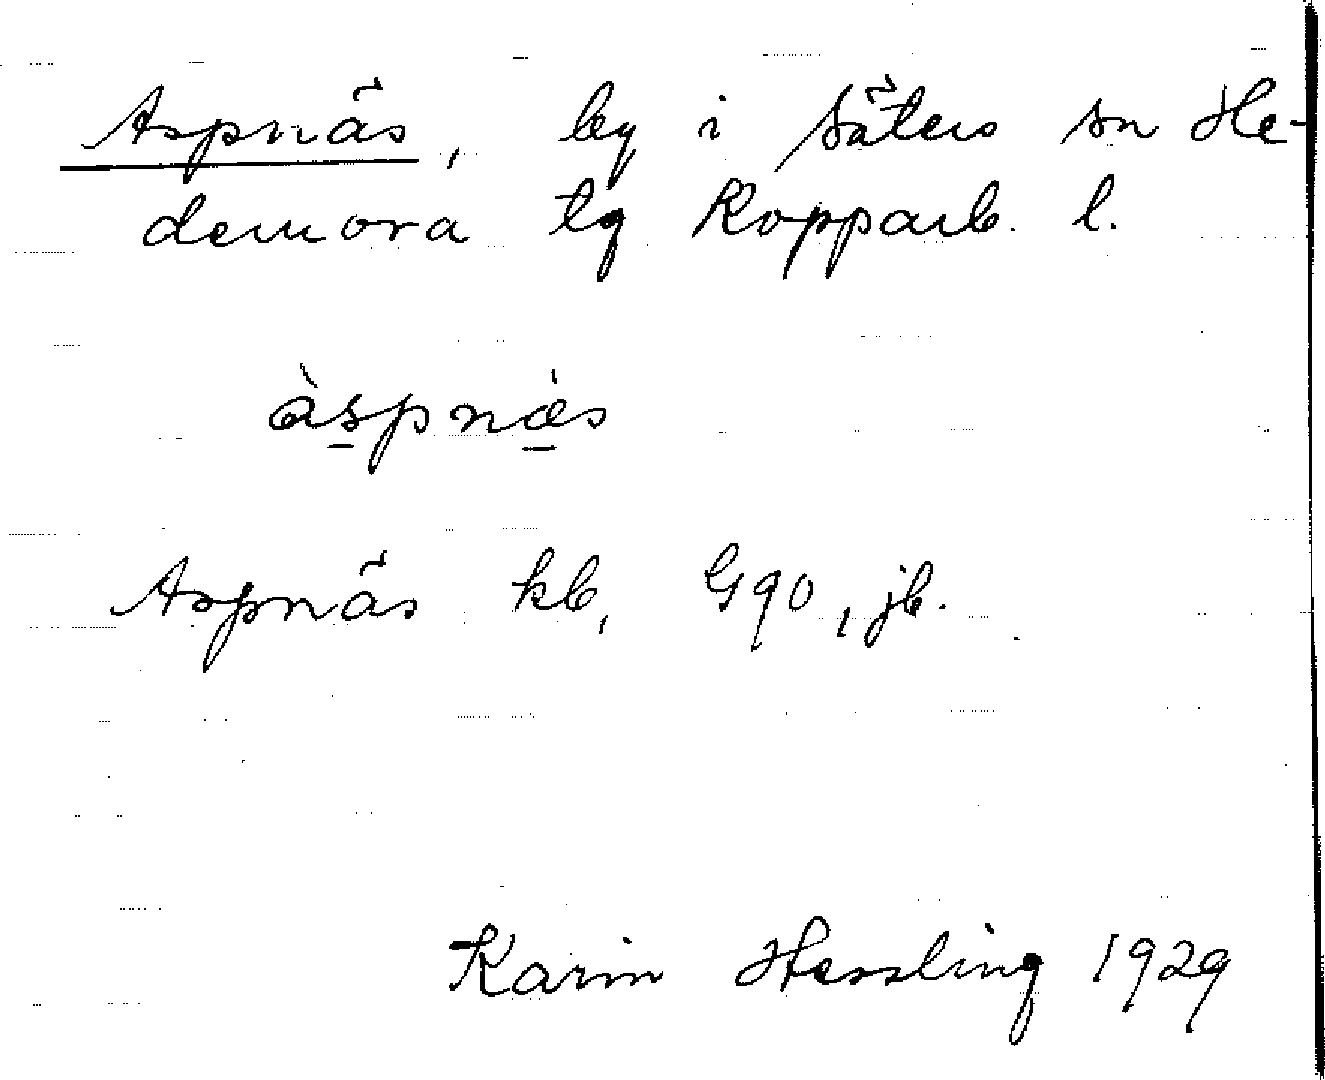 Aspnäs, by i Säters sn He-
demora tg Kopparb. l.
àspnæ̀s
Aspnäs kb, G90, jb.
Karin Hessling 1929